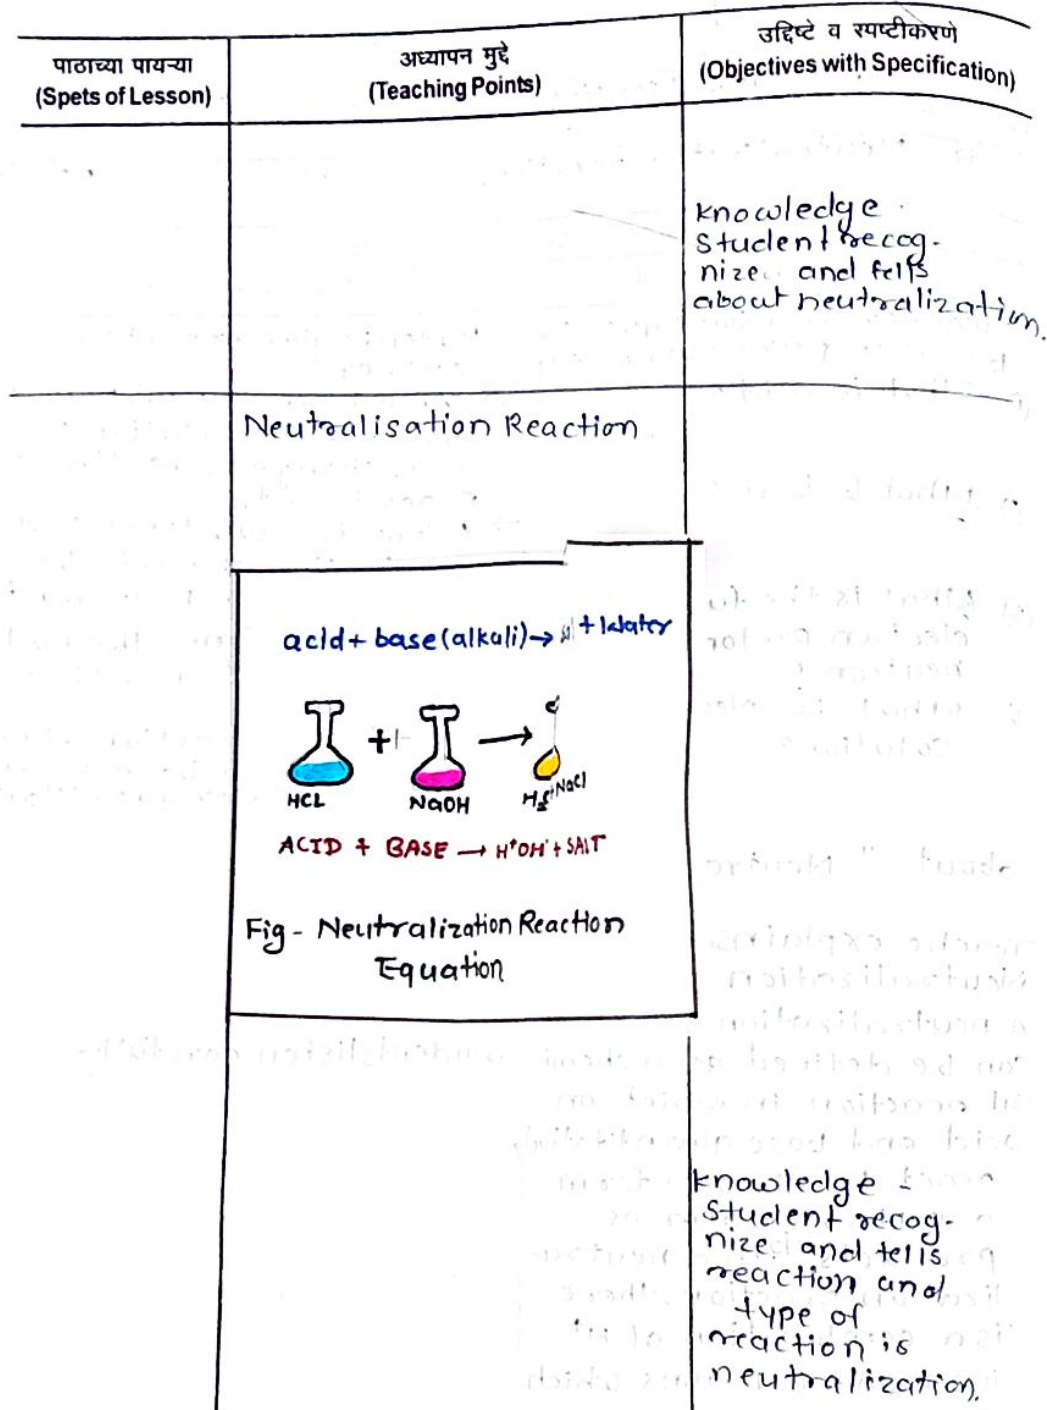 पाठाच्या पायऱ्या
(Spets of Lesson)
अध्यापन मुद्दे
(Teaching Points)
उद्दिष्टे व स्पष्टीकरणे
(Objectives with Specification)
knowledge
Student recog-
nize and tells
about neutralization.
Neutralisation Reaction
acid + base (alkali) → + Water
+ →
HCL
NaOH
+ NaCl
ACID + BASE → H⁺OH⁻ + SALT
Fig - Neutralization Reaction
Equation
knowledge -
Student recog-
nize and tells
reaction and
type of
reaction is
neutralization.